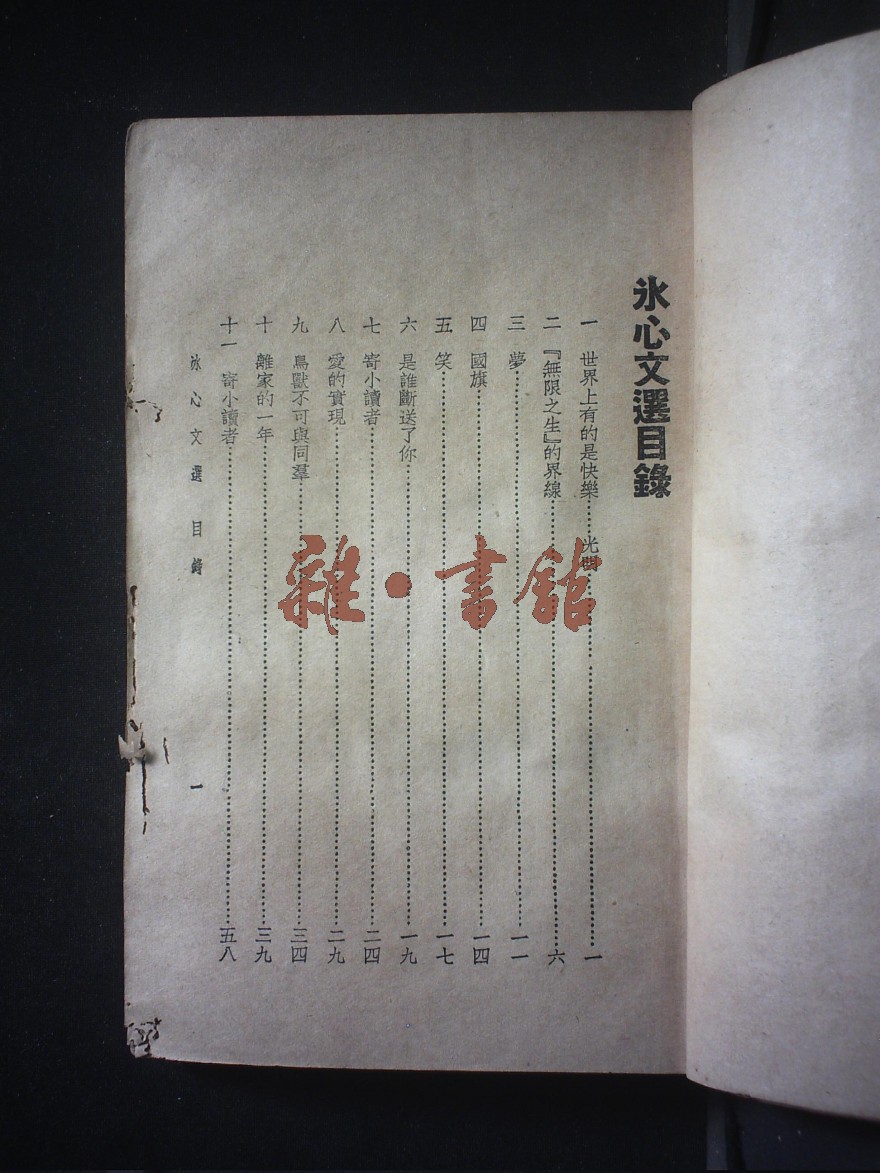 冰心文選目錄
一 世界上有的是快樂……光明……一
二 『無限之生』的界線……六
三 夢……一一
四 國旗……一四
五 笑……一七
六 是誰斷送了你……一九
七 寄小讀者……二四
八 愛的實現……二九
九 鳥獸不可與同羣……三四
十 離家的一年……三九
十一 寄小讀者……五八
冰心文選 目錄 一
雜·書館